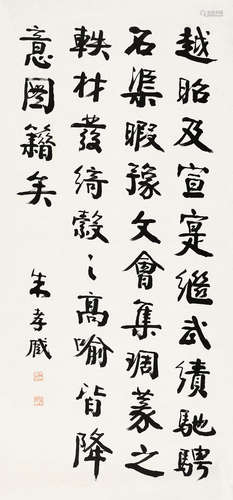 越昭及宣寔繼武績馳騁
石渠暇豫文會集琱篆之
軼材發綺縠之高喻皆降
意圖籍矣
朱孝臧